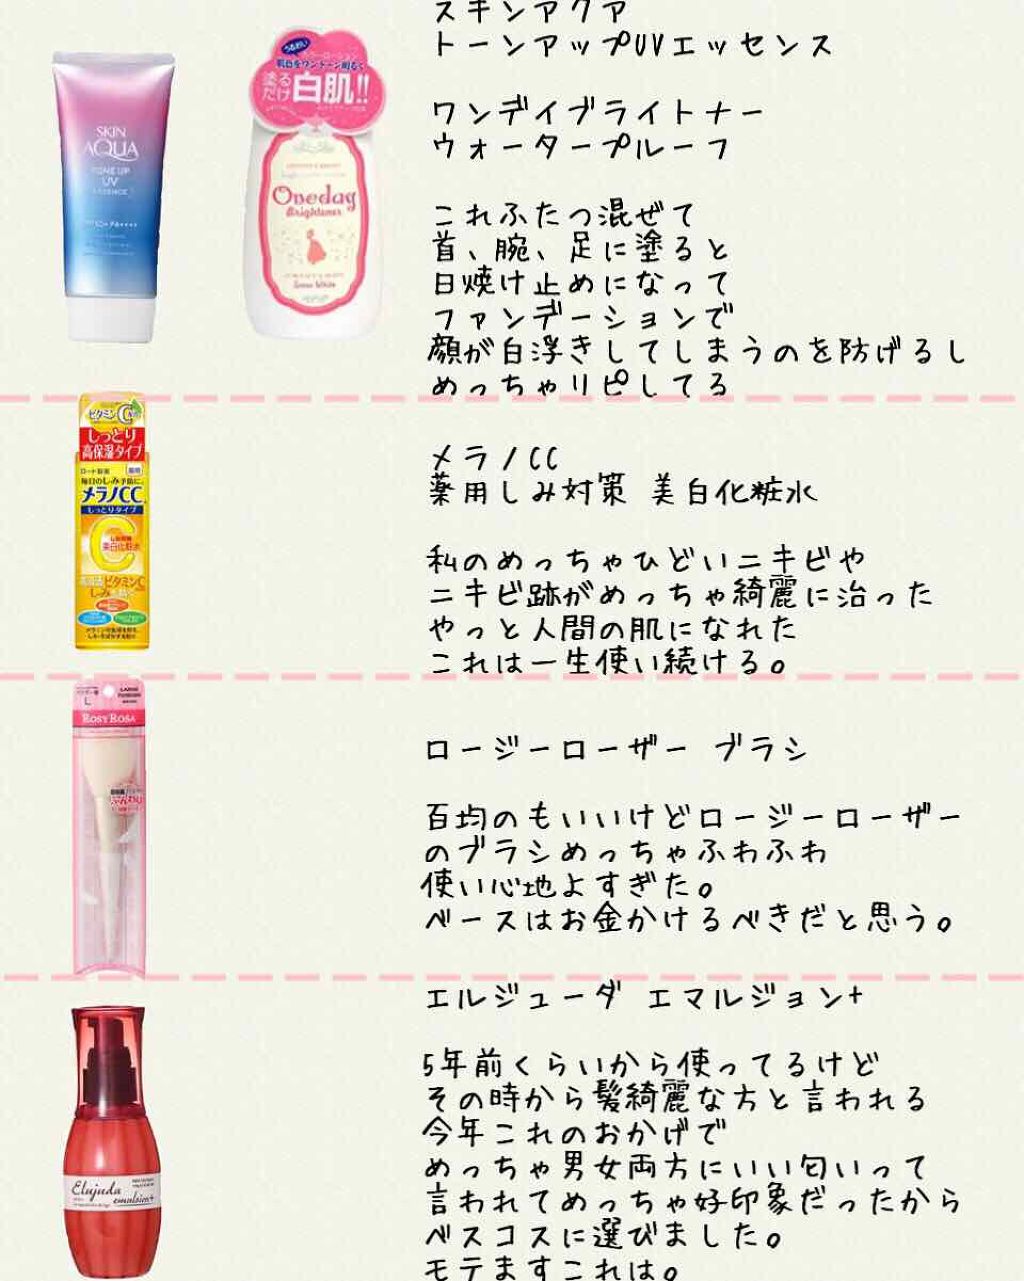 スキンアクア
トーンアップUVエッセンス
ワンデイブライトナー
ウォータープルーフ
これふたつ混ぜて
首、腕、足に塗ると
日焼け止めになって
ファンデーションで
顔が白浮きしてしまうのを防げるし
めっちゃリピしてる
SKIN
AQUA
TONE UP
UV
ESSENCE
うるおい
肌色をワントーン明るく
塗る
だけ
白肌!!
Oneday
Brightener
Snow White
メラノCC
薬用しみ対策 美白化粧水
私のめっちゃひどいニキビや
ニキビ跡がめっちゃ綺麗に治った
やっと人間の肌になれた
これは一生使い続ける。
ビタミンC
しっとり
高保湿タイプ
ロート製薬
毎日のしみ予防に。
メラノCC
しっとりタイプ
C
美白化粧水
ビタミンC
しみ
ロージーローザー ブラシ
百均のもいいけどロージーローザー
のブラシめっちゃふわふわ
使い心地よすぎた。
ベースはお金かけるべきだと思う。
L
ROSY ROSA
エルジューダ エマルジョン+
5年前くらいから使ってるけど
その時から髪綺麗な方と言われる
今年これのおかげで
めっちゃ男女両方にいい匂いって
言われてめっちゃ好印象だったから
ベスコスに選びました。
モテますこれは。
Elujuda
emulsion+